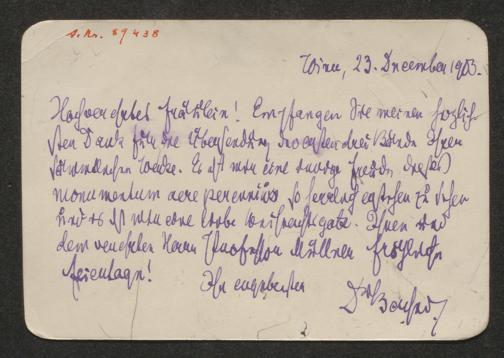 Wien, 23. December 1903.
Hochverehrtes Fräulein! Empfangen Sie meinen herzlich-
sten Dank für die Übersendung der ersten drei Bände Ihrer
sämmtlichen Werke. Es ist mir eine Freude, dieses
monumentum aere perennius so herrlich erstehen zu sehen
und es ist mir eine liebe Weihnachtsgabe. Ihnen und
dem verehrten Herrn Professor Müllner fröhliche
Feiertage!
Ihr ergebenster
Dr